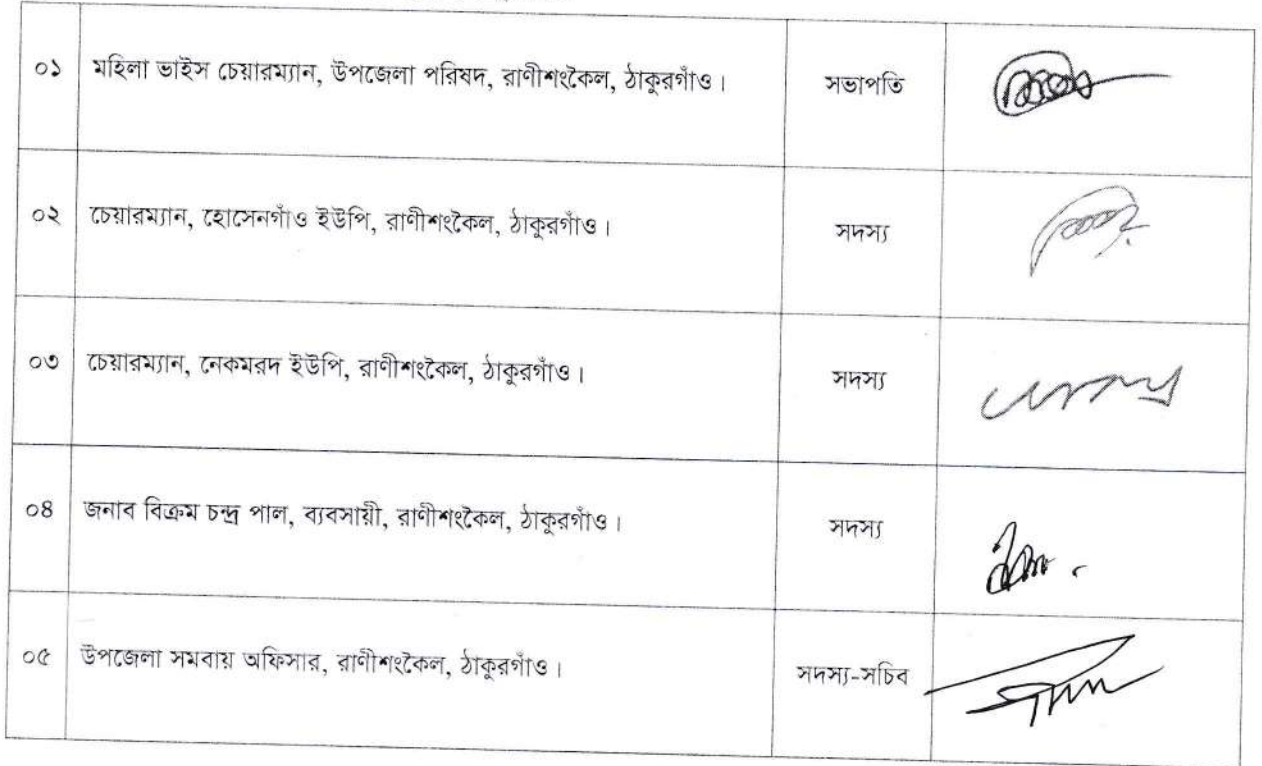 ০১ মহিলা ভাইস চেয়ারম্যান, উপজেলা পরিষদ, রাণীশংকৈল, ঠাকুরগাঁও। সভাপতি
০২ চেয়ারম্যান, হোসেনগাঁও ইউপি, রাণীশংকৈল, ঠাকুরগাঁও। সদস্য
০৩ চেয়ারম্যান, নেকমরদ ইউপি, রাণীশংকৈল, ঠাকুরগাঁও। সদস্য
০৪ জনাব বিক্রম চন্দ্র পাল, ব্যবসায়ী, রাণীশংকৈল, ঠাকুরগাঁও। সদস্য
০৫ উপজেলা সমবায় অফিসার, রাণীশংকৈল, ঠাকুরগাঁও। সদস্য-সচিব